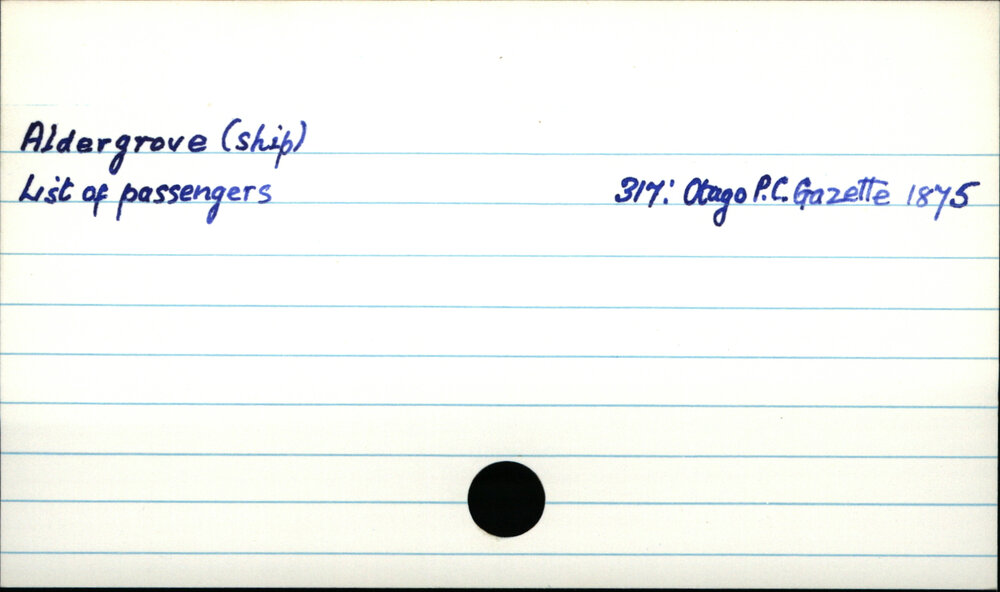 Aldergrove (ship)
List of passengers 317: Otago P.C. Gazette 1875